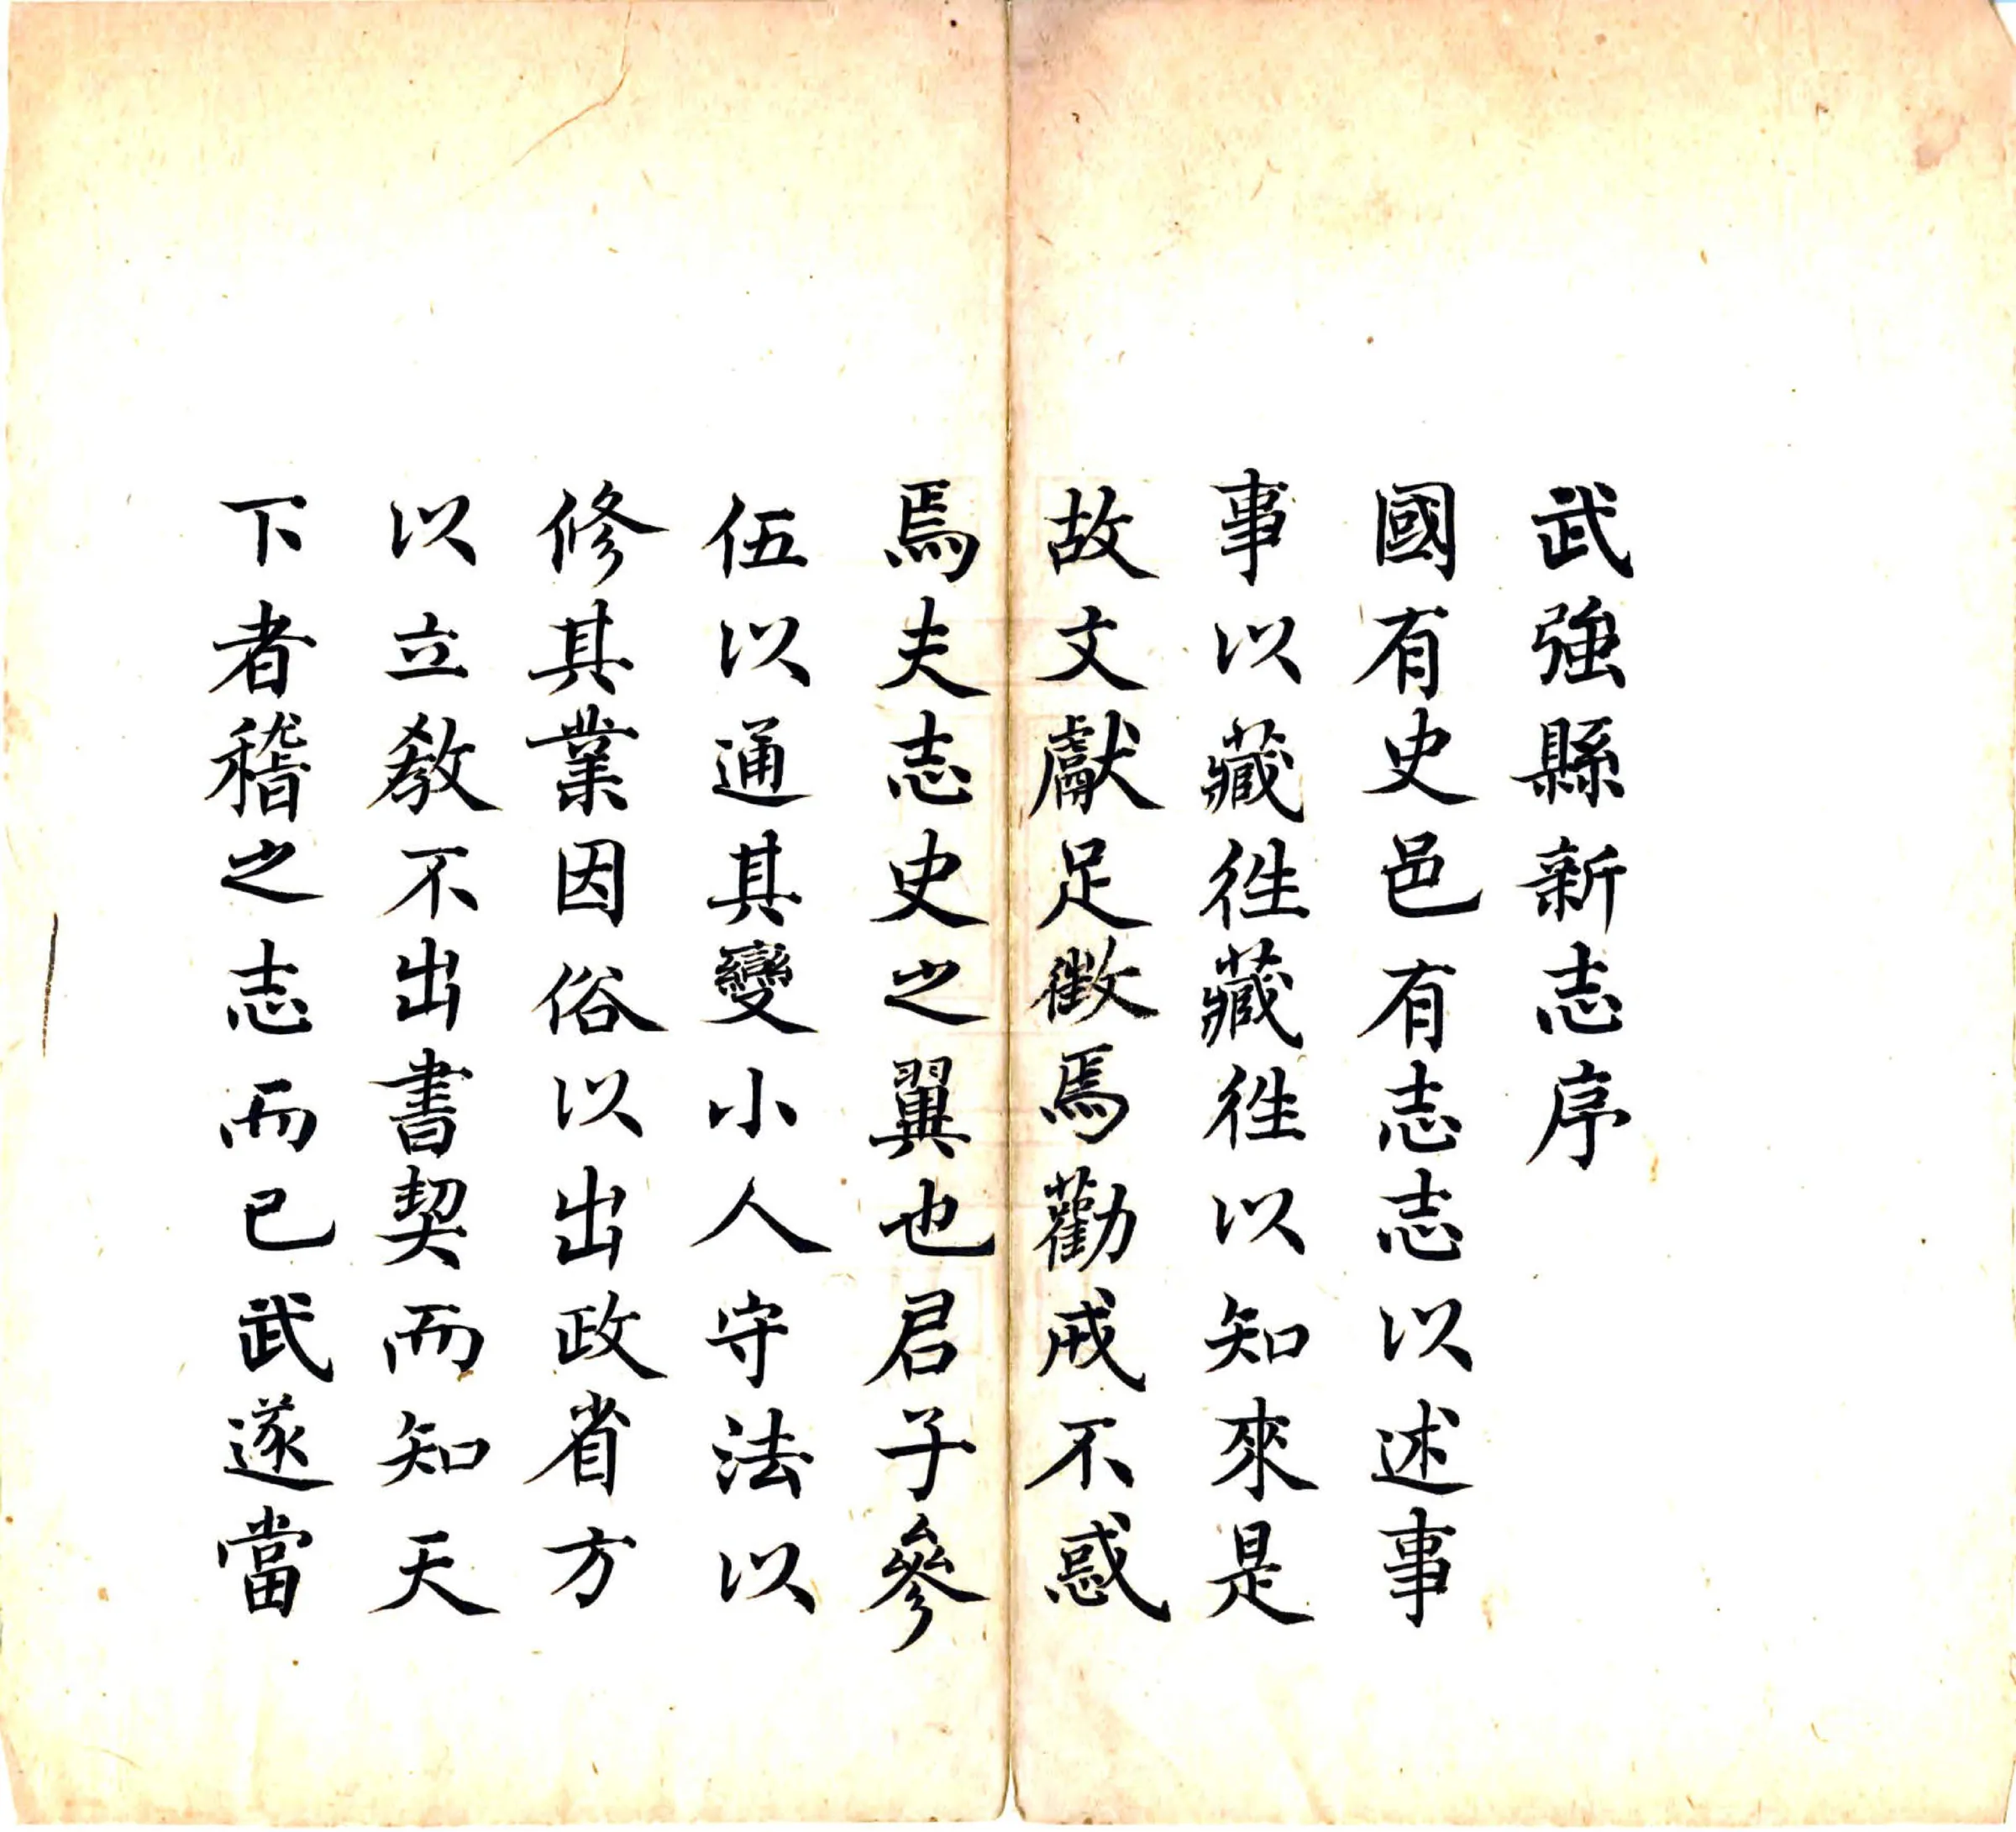 武強縣新志序
國有史邑有志志以述事
事以藏徃藏徃以知來是
故文獻足徴焉勸戒不惑
焉夫志史之翼也君子參
伍以通其變小人守法以
修其業因俗以出政省方
以立敎不出書契而知天
下者稽之志而已武遂當